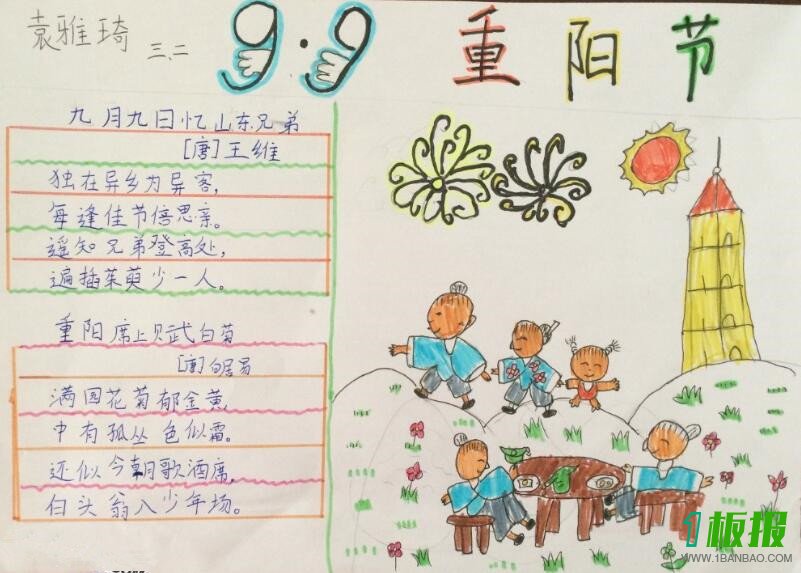 袁雅琦 三、二
9·9 重阳节
九月九日忆山东兄弟
[唐]王维
独在异乡为异客,
每逢佳节倍思亲。
遥知兄弟登高处,
遍插茱萸少一人。
重阳席上赋白菊
[唐]白居易
满园花菊郁金黄,
中有孤丛色似霜。
还似今朝歌酒席,
白头翁入少年场。
1板报
WWW.1BANBAO.COM